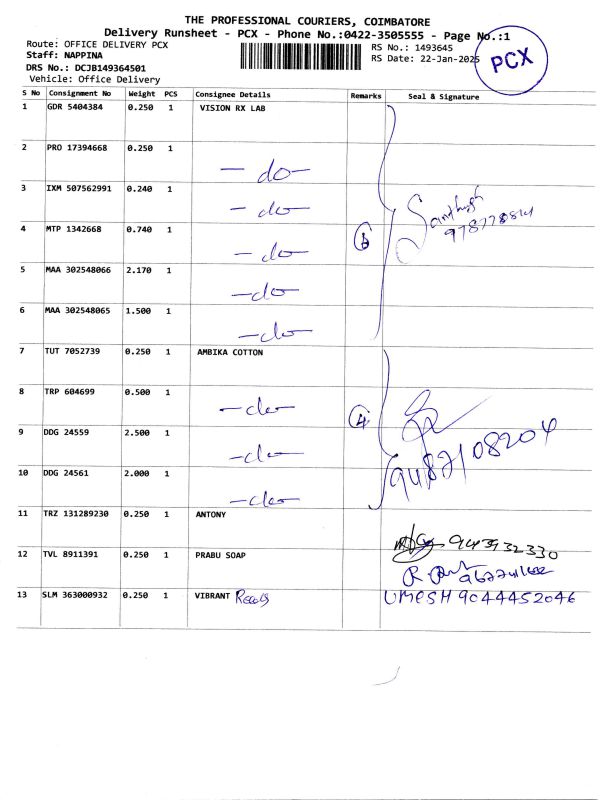 THE PROFESSIONAL COURIERS, COIMBATORE
Delivery Runsheet - PCX - Phone No.:0422-3505555 - Page No.:1
Route: OFFICE DELIVERY PCX RS No.: 1493645
Staff: NAPPINA RS Date: 22-Jan-2025
DRS No.: DCJB149364501
Vehicle: Office Delivery
PCX
S No Consignment No Weight PCS Consignee Details Remarks Seal & Signature
1 GDR 5404384 0.250 1 VISION RX LAB
2 PRO 17394668 0.250 1 -do-
3 IXM 507562991 0.240 1 -do-
4 MTP 1342668 0.740 1 -do- 6 Santhosh
5 MAA 302548066 2.170 1 -do-
6 MAA 302548065 1.500 1 -do-
7 TUT 7052739 0.250 1 AMBIKA COTTON
8 TRP 604699 0.500 1 -do- 4
9 DDG 24559 2.500 1 -do- 9487108204
10 DDG 24561 2.000 1 -do-
11 TRZ 131289230 0.250 1 ANTONY
12 TVL 8911391 0.250 1 PRABU SOAP
13 SLM 363000932 0.250 1 VIBRANT UMESH 9044452046